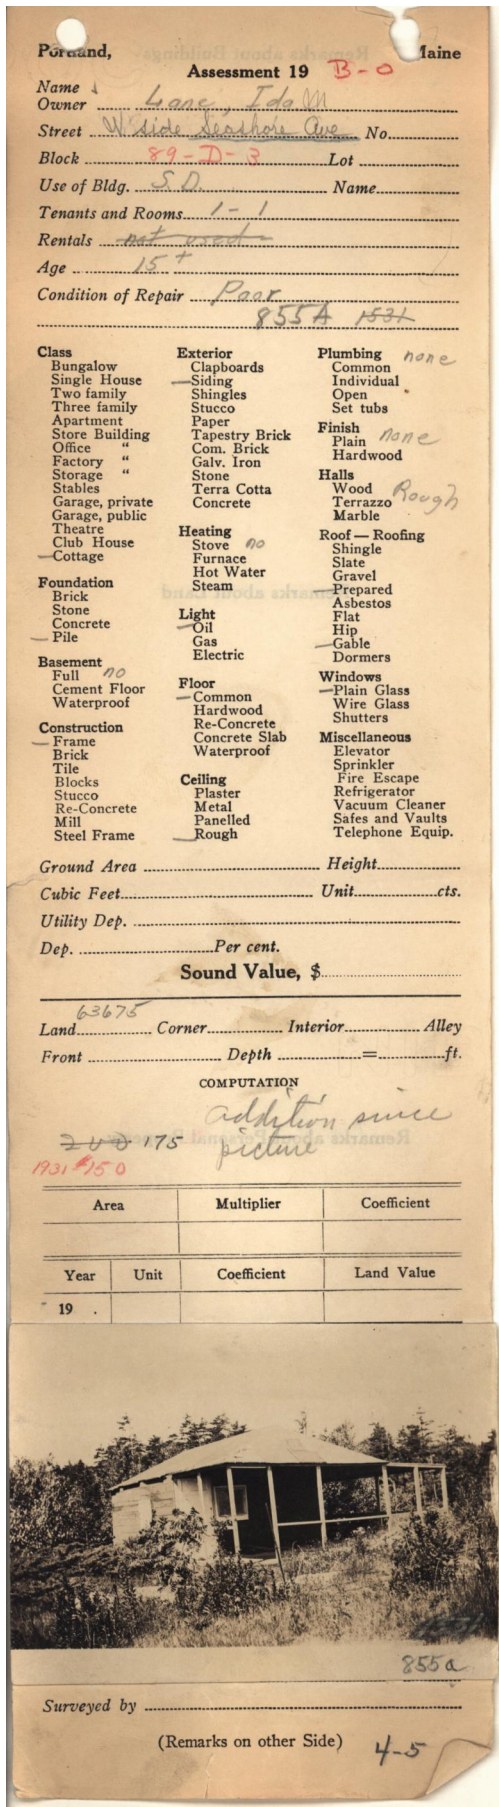 Portland, Maine
Assessment 19 B-0
Name
Owner Lane, Ida M
Street W. Side Seashore Ave No.
Block 89-D-3 Lot
Use of Bldg. S.D. Name
Tenants and Rooms 1-1
Rentals not used
Age 15+
Condition of Repair Poor
855A 1531
Class
Bungalow
Single House
Two family
Three family
Apartment
Store Building
Office "
Factory "
Storage "
Stables
Garage, private
Garage, public
Theatre
Club House
Cottage
Foundation
Brick
Stone
Concrete
Pile
Basement
Full no
Cement Floor
Waterproof
Construction
Frame
Brick
Tile
Blocks
Stucco
Re-Concrete
Mill
Steel Frame
Exterior
Clapboards
Siding
Shingles
Stucco
Paper
Tapestry Brick
Com. Brick
Galv. Iron
Stone
Terra Cotta
Concrete
Heating
Stove no
Furnace
Hot Water
Steam
Light
Oil
Gas
Electric
Floor
Common
Hardwood
Re-Concrete
Concrete Slab
Waterproof
Ceiling
Plaster
Metal
Panelled
Rough
Plumbing none
Common
Individual
Open
Set tubs
Finish
Plain none
Hardwood
Halls
Wood Rough
Terrazzo
Marble
Roof — Roofing
Shingle
Slate
Gravel
Prepared
Asbestos
Flat
Hip
Gable
Dormers
Windows
Plain Glass
Wire Glass
Shutters
Miscellaneous
Elevator
Sprinkler
Fire Escape
Refrigerator
Vacuum Cleaner
Safes and Vaults
Telephone Equip.
Ground Area Height
Cubic Feet Unit cts.
Utility Dep.
Dep. Per cent.
Sound Value, $
63675
Land Corner Interior Alley
Front Depth = ft.
COMPUTATION
addition since
picture
200 175
1931 $150
Area Multiplier Coefficient
Year Unit Coefficient Land Value
19 .
1531
855a
Surveyed by
(Remarks on other Side) 4-5